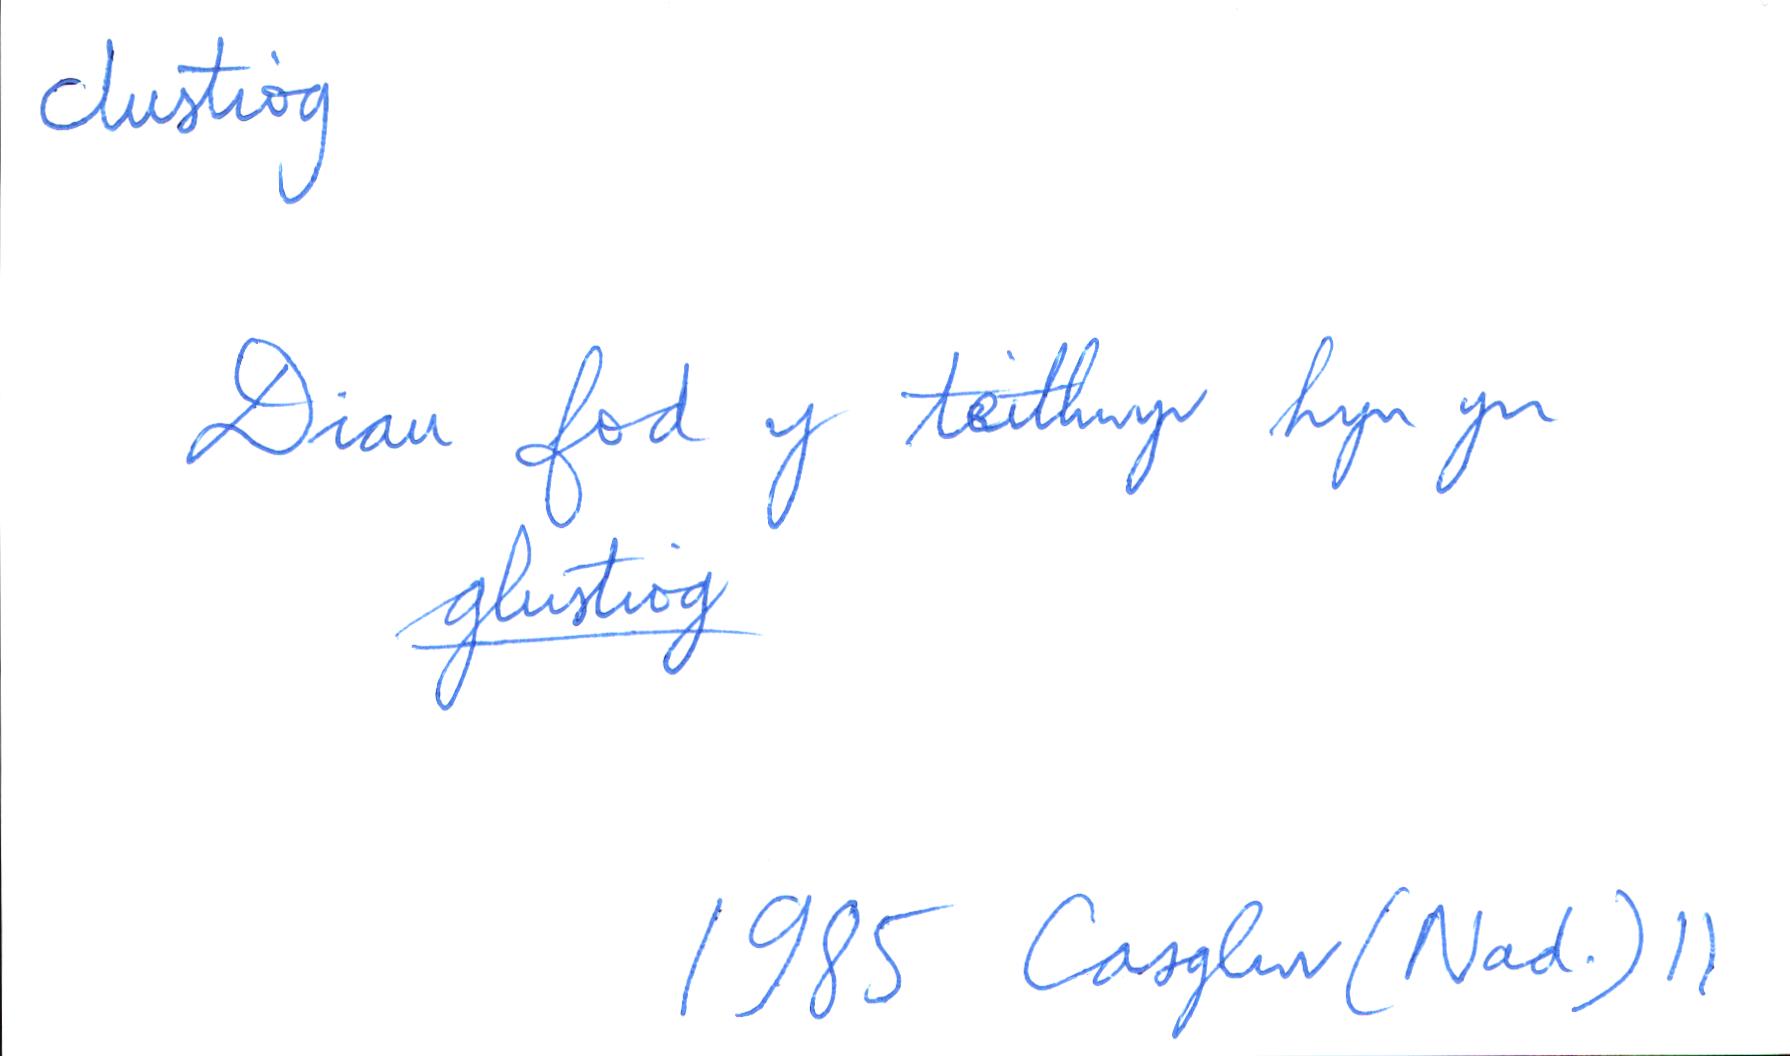 clustiog
Diau fod y teithwyr hyn yn
glustiog
1985 Casglwr (Nad.) 11